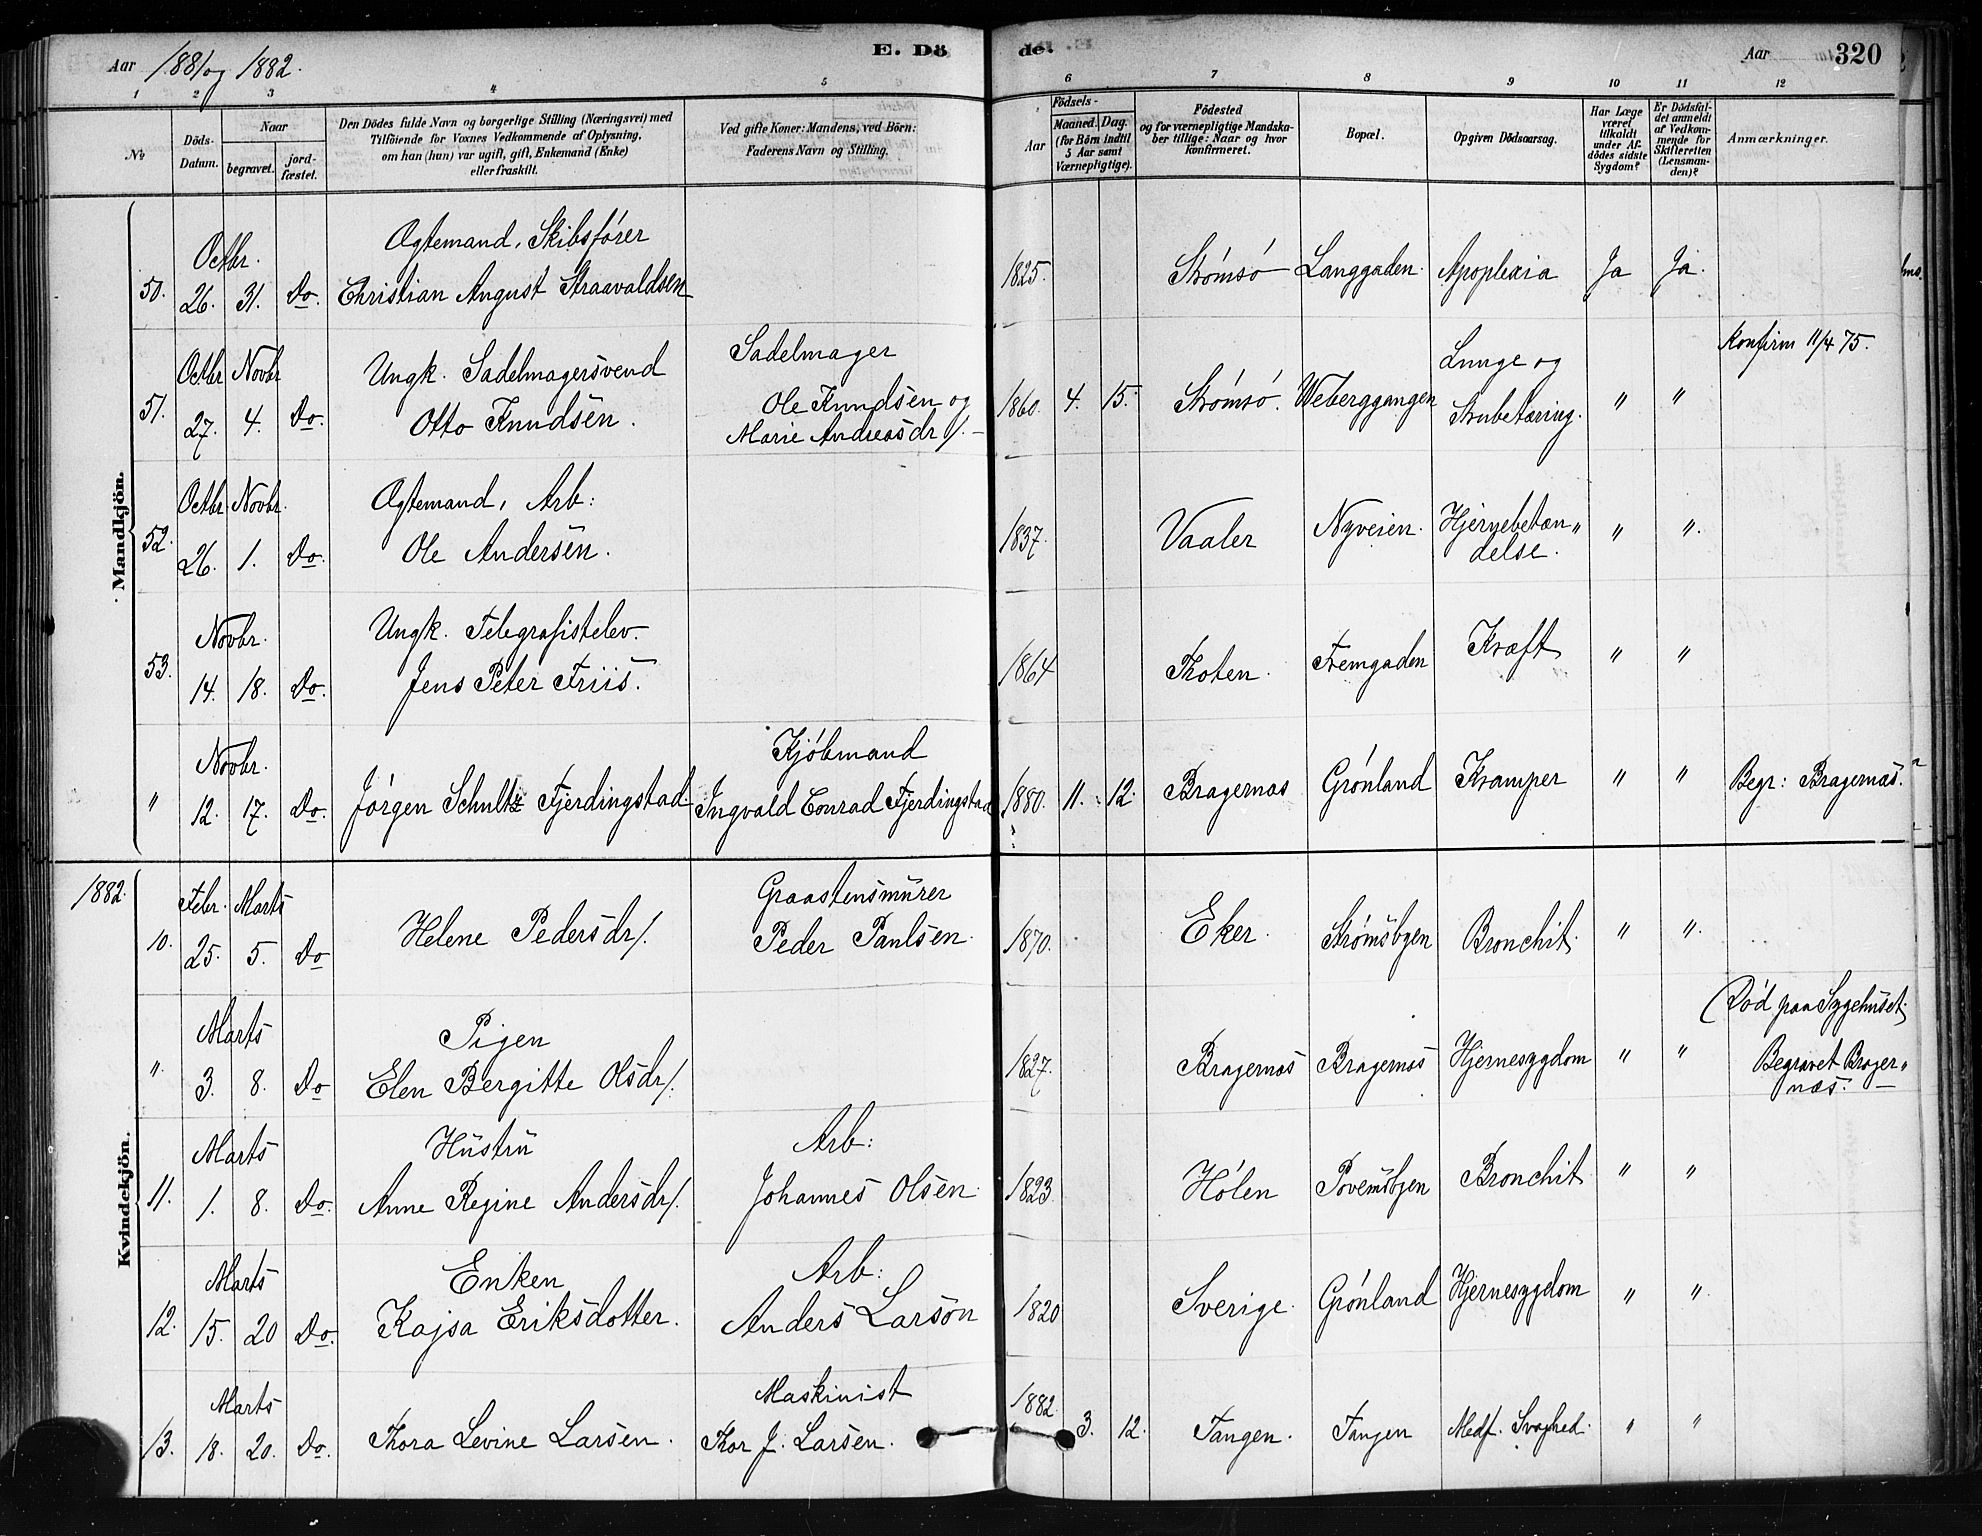 Aar 1881 og 1882.
E. Döde.
Aar
320
1 2 3 4 5 6 7 8 9 10 11 12
No
Döds-Datum.
Naar
begravet.
jordfæstet.
Den Dödes fulde Navn og borgerlige Stilling (Næringsvei) med
Tilföiende for Voxnes Vedkommende af Oplysning,
om han (hun) var ugift, gift, Enkemand (Enke)
eller fraskilt.
Ved gifte Koner: Mandens, ved Börn:
Faderens Navn og Stilling.
Födsels-
Aar
Maaned. Dag.
(for Börn indtil
5 Aar samt
Værnepligtige).
Födested
og for værnepligtige Mandskaber tillige: Naar og hvor
konfirmeret.
Bopæl.
Opgiven Dödsaarsag.
Har Læge
været
tilkaldt
under Afdödes sidste
Sygdom?
Er Dödsfaldet anmeldt
af Vedkommende for
Skifteretten
(Lensmanden)?
Anmærkninger.
Mandkjön.
Octbr. Ægtemand, Skibsfører
50. 26. 31. Do. Christian August Straavaldsen 1825. Strømsø Langgaden. Apoplexia Ja Ja.
Octbr Novbr Ungk. Sadelmagersvend Sadelmager Lunge og Konfirm 11/4 75.
51. 27. 4. Do. Otto Knudsen. Ole Knudsen og 1860. 4. 15. Strømsø. Weberggangen Strubetæring. " "
Marie Andreasdr/. –
Octbr. Novbr. Ægtemand, Arb:
52. 26. 1. Do. Ole Andersen. 1837. Vaaler Nyveien. Hjernebetæn„ " ".
delse.
Novbr. Ungk. Telegrafistelev.
53. 14. 18. Do. Jens Peter Friis. 1864 Thoten. Fremgaden Kræft " "
Novbr. Kjøbmand
" 12. 17. Do. Jørgen Schultz Fjerdingstad Ingvald Conrad Fjerdingstad 1880. 11. 12. Bragernæs Grønland Kramper " " Begr: Bragernæs.
Kvindekjön.
1882.
Febr. Marts Graastensmurer
10. 25. 5. Do Helene Pedersdr/. Peder Paulsen. 1870. Eker. Strømsbyen Bronchit. " ".
Marts Pigen (Død paa Sygehuset
". 3. 8. Do Elen Bergitte Olsdr/. 1827. Bragernæs Bragernæs Hjernesygdom " " Begravet Brager„
næs. –
Marts Hustru Arb:
11. 1. 8. Do. Anne Regine Andersdr/. Johannes Olsen. 1823. Hølen Povemsbyen Bronchit " "
Marts Enken Arb:
12. 15. 20 Do. Kajsa Eriksdotter. Anders Larson 1820 Sverige. Grønland Hjernesygdom " ".
Marts Maskinist 1882.
13. 18. 20. Do. Thora Levine Larsen. Thor J. Larsen. 3. 12. Tangen. Tangen Medf. Svaghed. " "